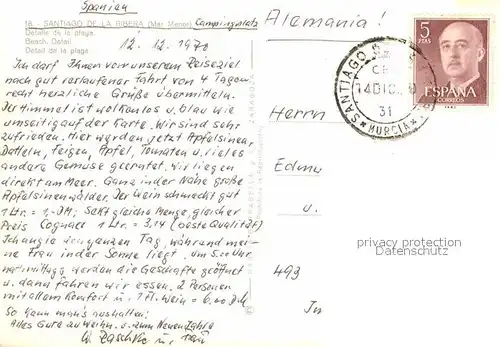 Spanien
18. - SANTIAGO DE LA RIBERA (Mar Menor) Campingplatz
Detalle de la playa.
Beach. Detail
Détail de la plage
12. 12. 1970
Ich darf Ihnen von unserem Reiseziel
nach gut verlaufener Fahrt von 4 Tagen
recht herzliche Grüße übermitteln.
Der Himmel ist wolkenlos u. blau wie
umseitig auf der Karte. Wir sind sehr
zufrieden. Hier werden jetzt Apfelsinen,
Datteln, Feigen, Äpfel, Tomaten u. vieles
andere Gemüse geerntet. Wir liegen
direkt am Meer. Ganz in der Nähe große
Apfelsinenwälder. Der Wein schmeckt gut
1 Ltr. = 1,- DM; Sekt gleiche Menge, gleicher
Preis Cognac 1 Ltr. = 3,14 (beste Qualität)
Ich angle den ganzen Tag, während mei-
ne Frau in der Sonne liegt. Um 5.00 Uhr
nachmittags werden die Geschäfte geöffnet
u. dann fahren wir essen. 2 Personen
mit allem Komfort u. 1 Fl. Wein = 6,00 DM
So kann man's aushalten!
Alles Gute zu Weihn. u. zum Neuen Jahre
Alemania!
5
PTAS
ESPAÑA
CORREOS
SANTIAGO
14 DIC.
31
★ MURCIA ★
Herrn
Edmu
u.
493
In
privacy protection
Datenschutz